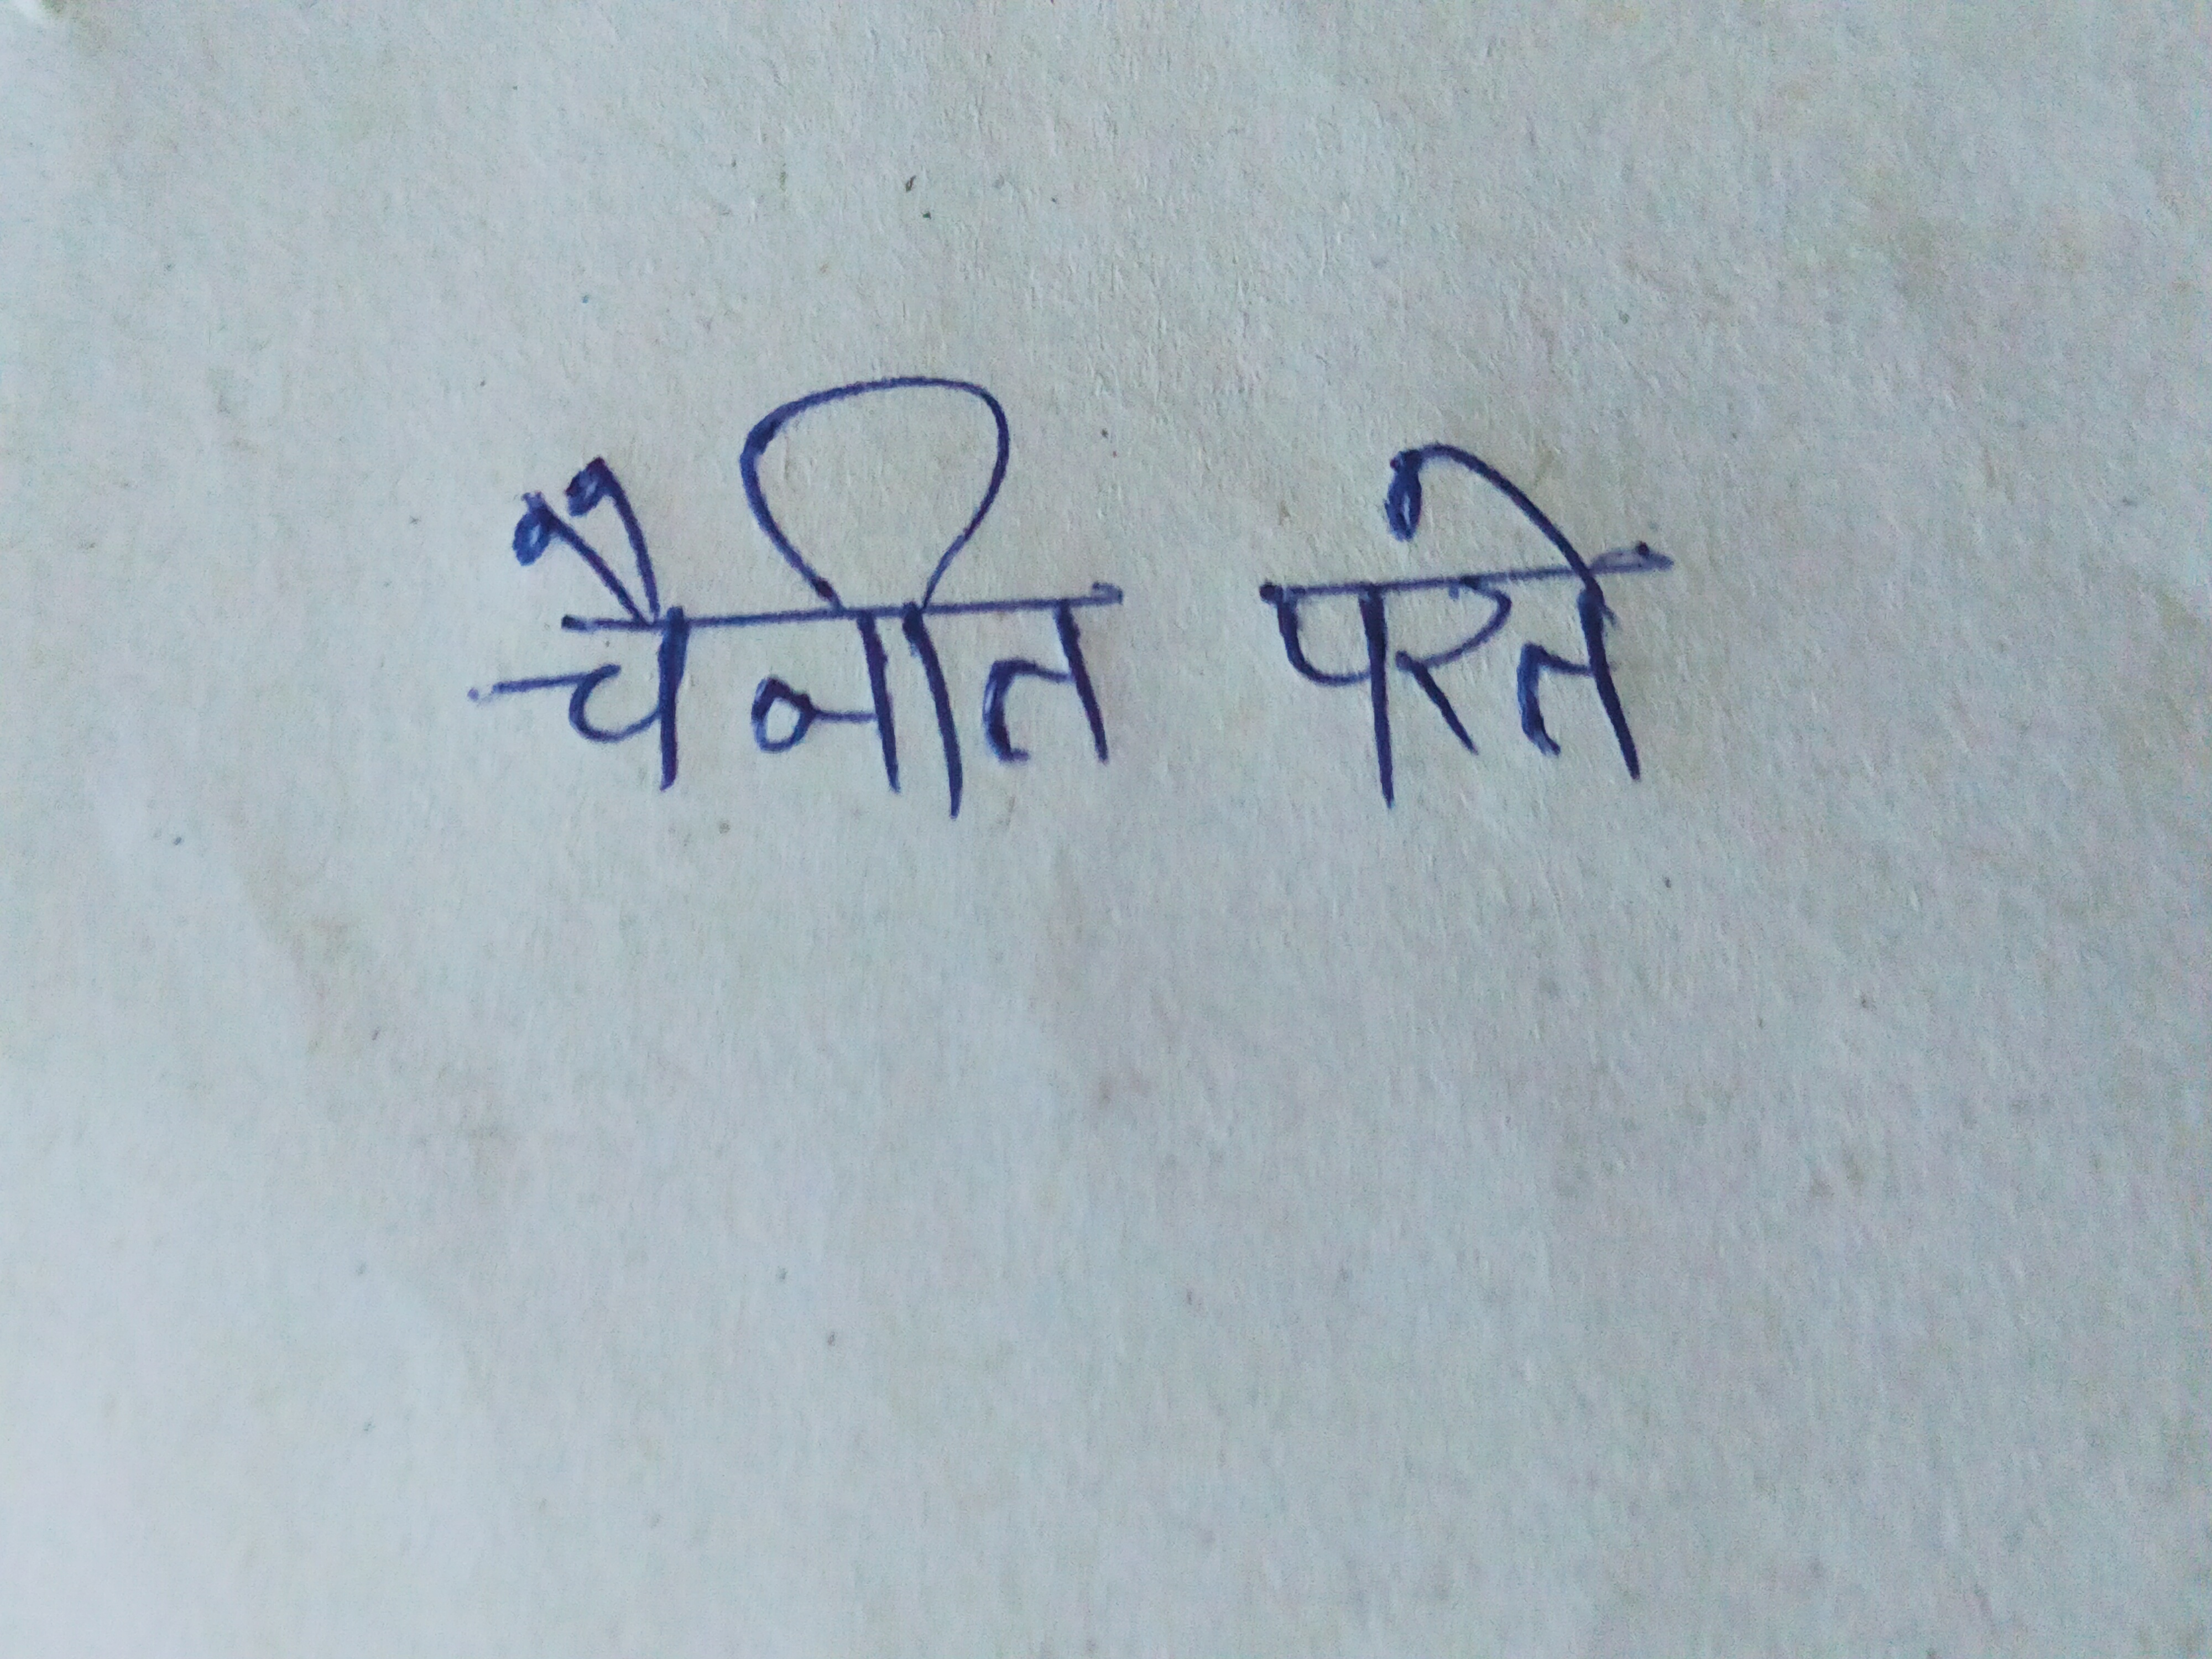 चैनीत परते